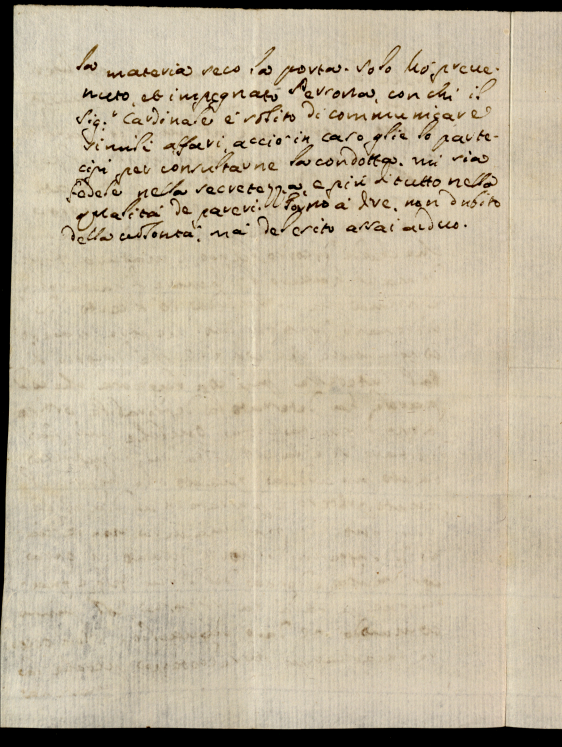 la materia seco la porta. Solo hò preue-
nuto, et impegnato Persona, con chi il
Sig.r Cardinale è solito di communicare
simili affari, acciò in caso glie lo parte-
cipi per consultarne la condotta. mi sia
fedele nella secretezza, e più di tutto nella
qualità de pareri. Torno à dire, non dubito
della volontà; mà de l'esito assai arduo.